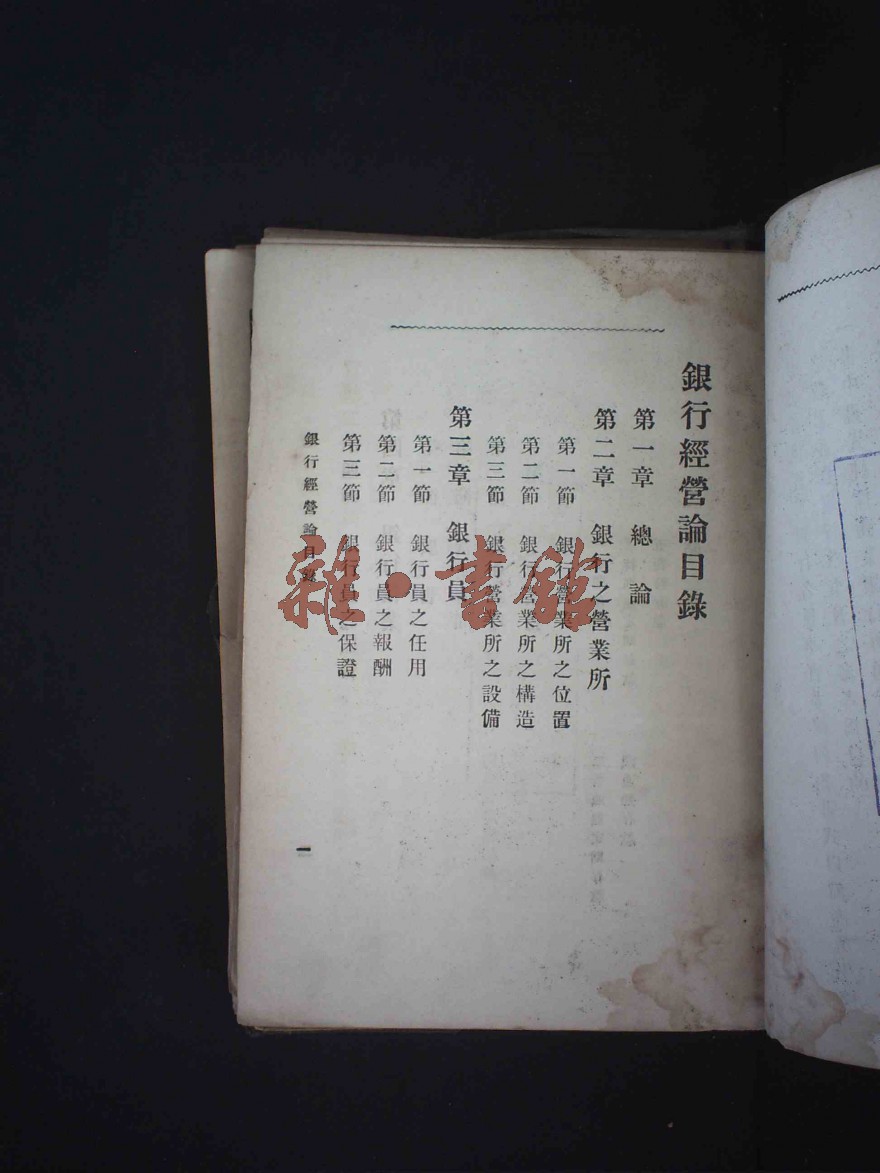 銀行經營論目錄
第一章　總論
第二章　銀行之營業所
第一節　銀行營業所之位置
第二節　銀行營業所之構造
第三節　銀行營業所之設備
第三章　銀行員
第一節　銀行員之任用
第二節　銀行員之報酬
第三節　銀行員之保證
銀行經營論目錄
一
雜·書館